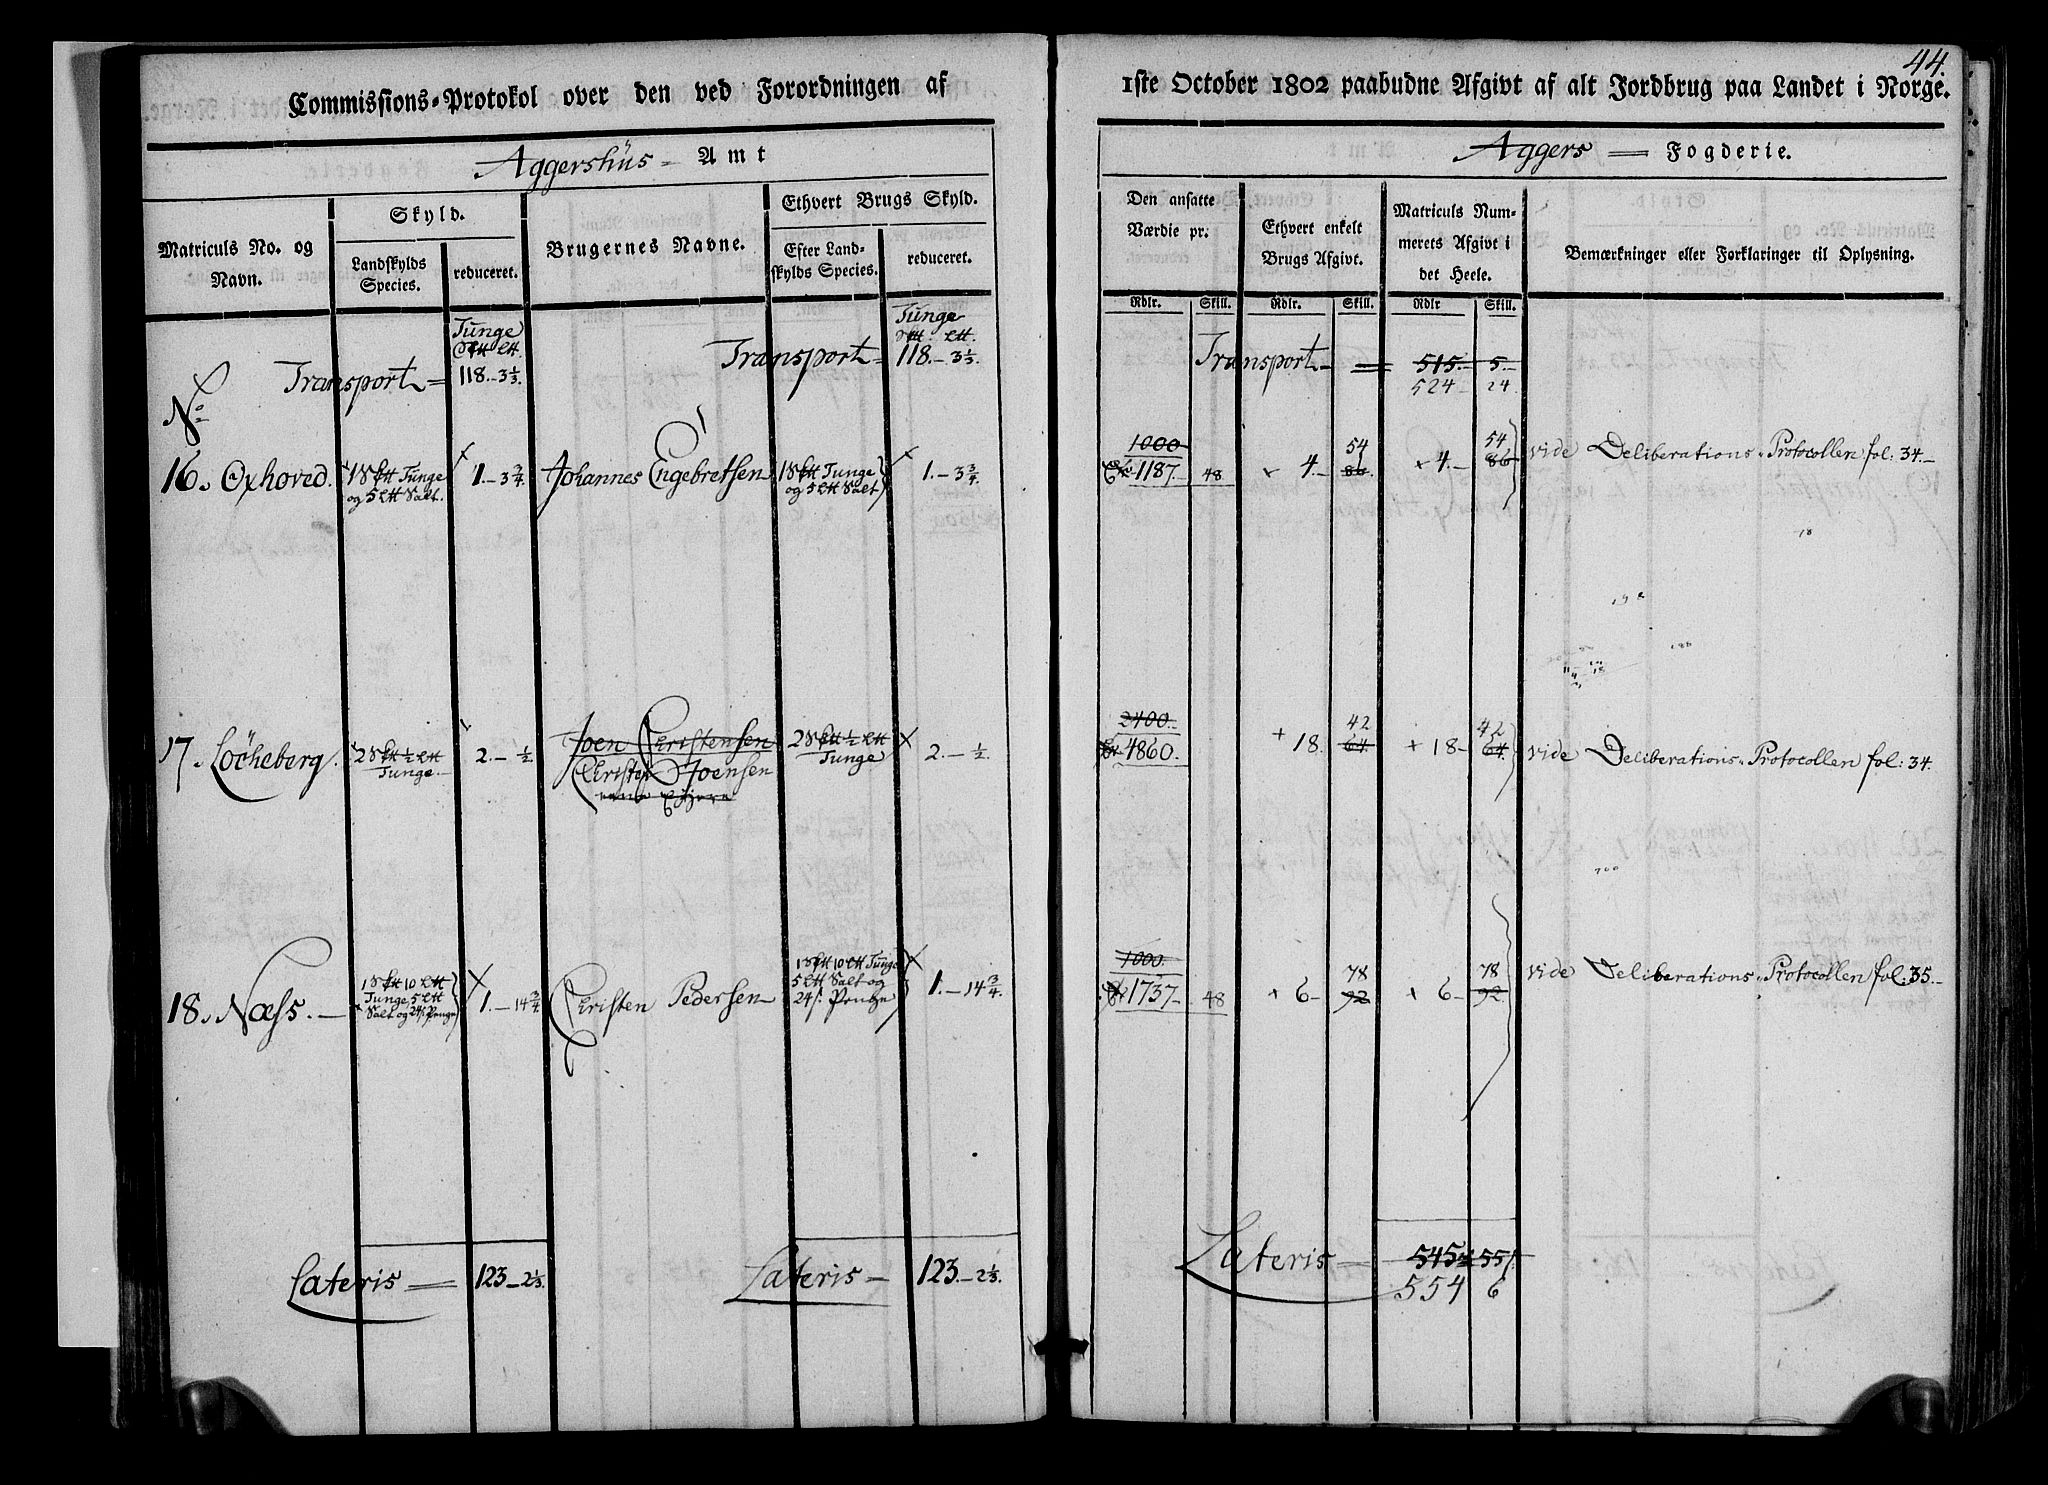 44.
Commissions-Protokol over den ved Forordningen af
1ste October 1802 paabudne Afgivt af alt Jordbrug paa Landet i Norge.
Aggershüs = Amt
Aggers = Fogderie.
Matriculs No. og Navn.
Skyld.
Landskylds Species.
reduceret.
Brugernes Navne.
Ethvert Brugs Skyld.
Efter Landskylds Species.
reduceret.
Den ansatte Værdie pr:
Ethvert enkelt Brugs Afgivt.
Matriculs Nummerets Afgivt i det Heele.
Bemærkninger eller Forklaringer til Oplysning.
Rdlr. Skill. Rdlr. Skill. Rdlr Skill.
Tunge
Transport = 118.-3⅓.
Tunge
Transport = 118.-3⅓.
Transport = 515. 5.
524 24
No
16. Oxhoved. 1 Tunge og 5 Salt. 1.-3¾ Johannes Engebretsen 1 Tunge og 5 Salt 1.-3¾
1000
1187. 48 4.- 54 86. 4.- 54 86 vide Deliberations-Protocollen fol: 34.
17. Löcheberg. 2 ½ Tunge 2.-½ Joen Christensen 2 ½ Tunge 2.-½.
Christen Joensen
2400.
4860. 18. 42 64 18- 42 64. vide Deliberations-Protocollen fol: 34.
18. Næss. 1 10 Tunge, 5 Salt og 24 Penge 1.-14¾ Christen Pedersen 1 10 Tunge 5 Salt og 24 Penge 1.-14¾.
1000.
1737. 48 6- 78 92 6- 78 92. vide Deliberations-Protocollen fol: 35.
Lateris = 123-2⅓.
Lateris - 123.-2⅓.
Lateris = 545 55
554 6